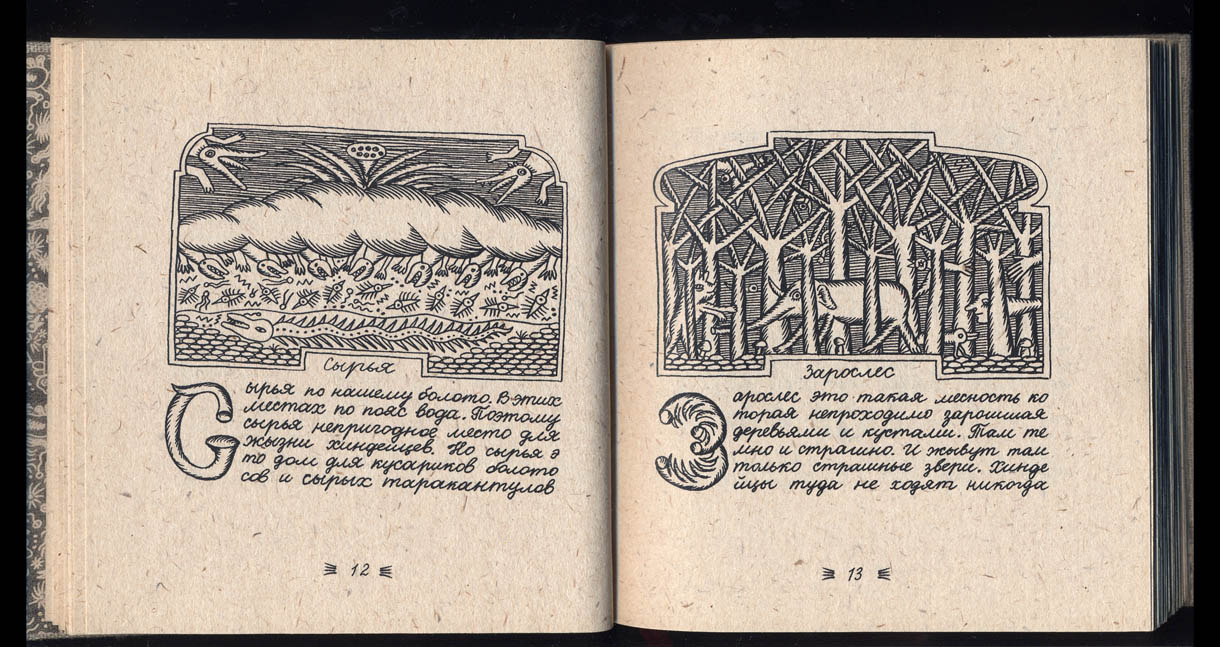 Сырья
Сырья по нашему болото. В этих
местах по пояс вода. Поэтому
сырья непригодное место для
жызни хиндейцев. Но сырья э
то дом для кусариков болото
сов и сырых таракантулов
12
Зарослес
Зарослес это такая месность ко
торая непроходимо заросшая
деревьями и кустами. Там те
мно и страшно. И жывут там
только страшные звери. Хинде
йцы туда не ходят никогда
13